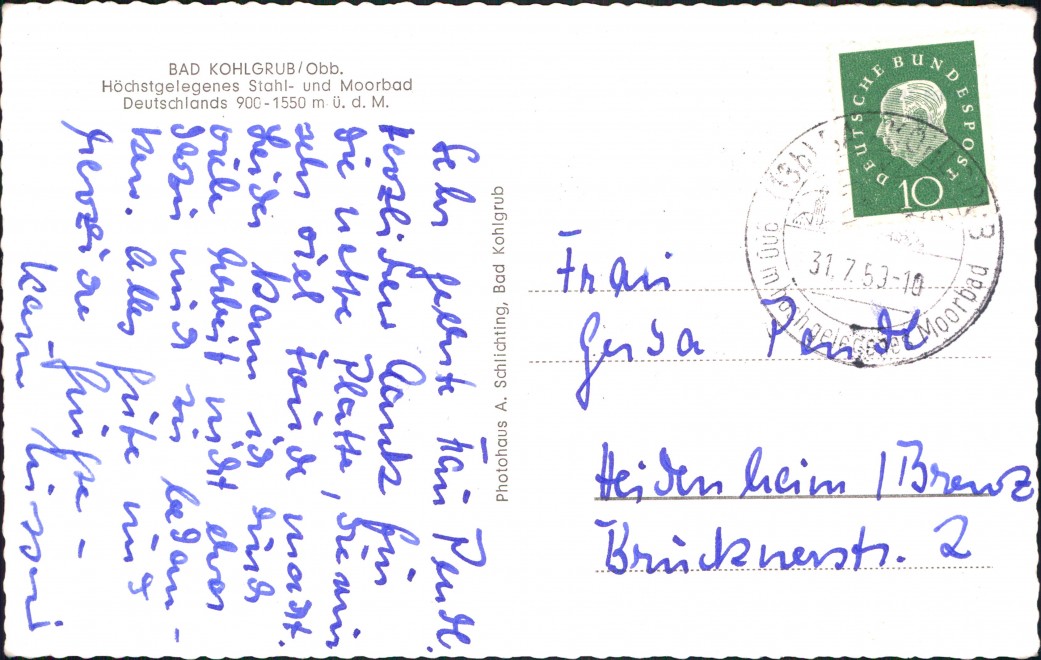 BAD KOHLGRUB/Obb.
Höchstgelegenes Stahl- und Moorbad
Deutschlands 900-1550 m ü. d. M.
Sehr geehrte Frau Pendl.
herzlichen Dank für
die nette Platte, die mir
sehr viel Freude macht.
Leider kann ich durch
viele Arbeit nicht eher
dazu mich zu bedan-
ken. Alles Gute und
herzliche Grüße -
Photohaus A. Schlichting, Bad Kohlgrub
DEUTSCHE BUNDESPOST
10
31.7.59-10
Moorbad
Frau
Gerda Pendl
Heidenheim / Brenz
Brucknerstr. 2